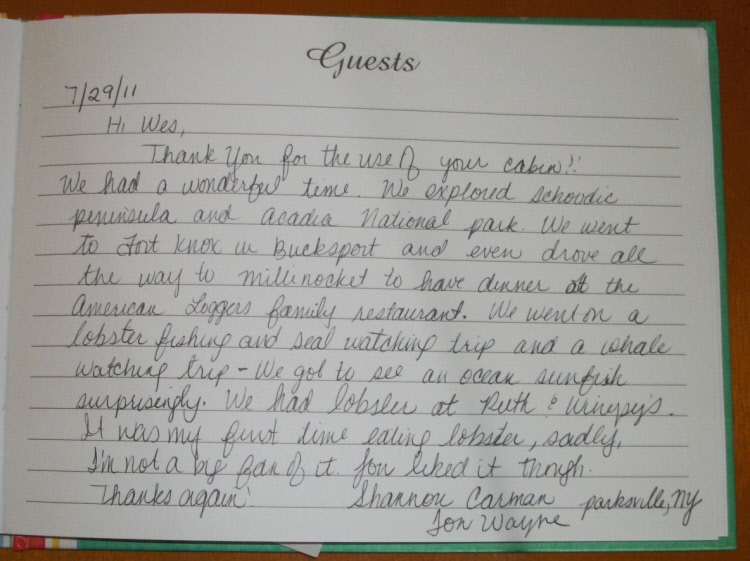 Guests
7/29/11
Hi Wes,
Thank You for the use of your cabin!!
We had a wonderful time. We explored Schoodic
peninsula and Acadia National park. We went
to Fort Knox in Bucksport and even drove all
the way to Millinocket to have dinner at the
American Loggers family restaurant. We went on a
lobster fishing and seal watching trip and a whale
watching trip - We got to see an ocean sunfish
surprisingly. We had lobster at Ruth & Wimpy's.
It was my first time eating lobster, sadly,
I'm not a big fan of it. Jon liked it though.
Thanks again! Shannon Carman Parksville, NY
Jon Wayne